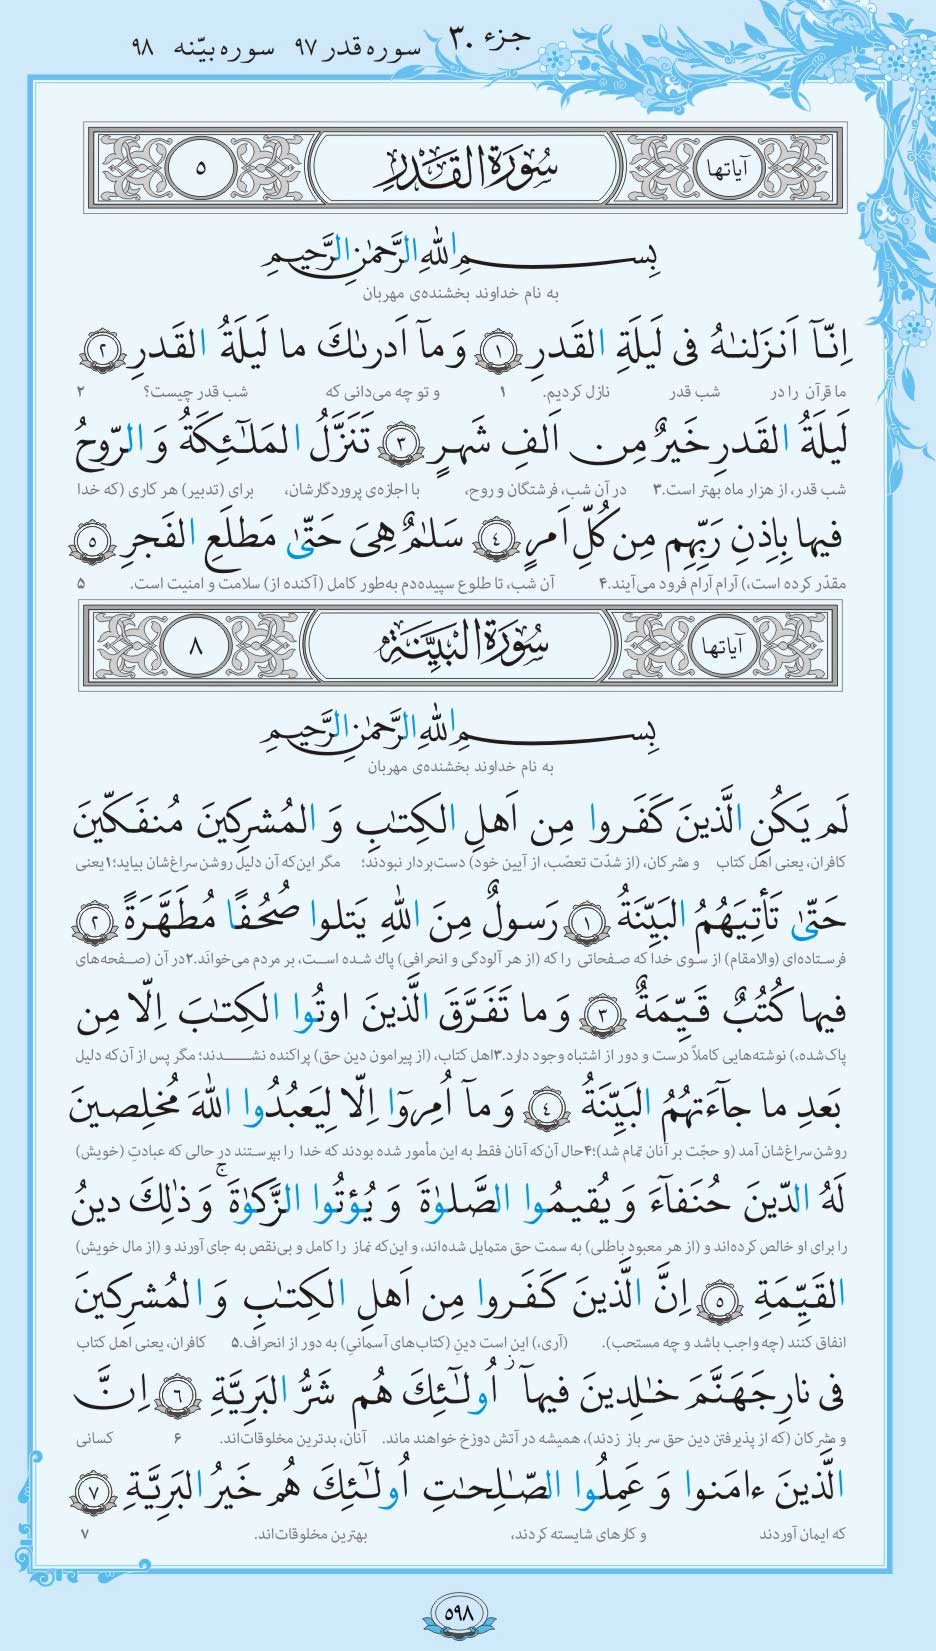 جزء ۳۰ سوره قدر ۹۷ سوره بیّنه ۹۸
آیاتها سُورَةُ القَدْرِ ۵
بِسمِ اللهِ الرَّحمٰنِ الرَّحیمِ
به نام خداوند بخشنده‌ی مهربان
اِنّآ اَنزَلنٰهُ فی لَیلَةِ القَدرِ ۱ وَ مآ اَدرىٰكَ ما لَیلَةُ القَدرِ ۲
ما قرآن را در شب قدر نازل کردیم. ۱ و تو چه می‌دانی که شب قدر چیست؟ ۲
لَیلَةُ القَدرِ خَیرٌ مِن اَلفِ شَهرٍ ۳ تَنَزَّلُ المَلٰٓئِكَةُ وَ الرّوحُ
شب قدر، از هزار ماه بهتر است.۳ در آن شب، فرشتگان و روح، با اجازه‌ی پروردگارشان، برای (تدبیر) هر کاری (که خدا
فیها بِاِذنِ رَبِّهِم مِن كُلِّ اَمرٍ ۴ سَلٰمٌ هِیَ حَتّىٰ مَطلَعِ الفَجرِ ۵
مقدّر کرده است،) آرام آرام فرود می‌آیند.۴ آن شب، تا طلوع سپیده‌دم به‌طور کامل (آکنده از) سلامت و امنیت است. ۵
آیاتها سُورَةُ البَیِّنَةِ ۸
بِسمِ اللهِ الرَّحمٰنِ الرَّحیمِ
به نام خداوند بخشنده‌ی مهربان
لَم یَكُنِ الَّذینَ كَفَروا مِن اَهلِ الكِتٰبِ وَ المُشرِكینَ مُنفَكّینَ
کافران، یعنی اهل کتاب و مشرکان، (از شدّت تعصّب، از آیین خود) دست‌بردار نبودند؛ مگر این‌که آن دلیل روشن سراغ‌شان بیاید؛۱یعنی
حَتّىٰ تَأتِیَهُمُ البَیِّنَةُ ۱ رَسولٌ مِنَ اللهِ یَتلوا صُحُفًا مُطَهَّرَةً ۲
فرستاده‌ای (والامقام) از سوی خدا که صفحاتی را که (از هر آلودگی و انحرافی) پاك شده است، بر مردم می‌خواند.۲در آن (صفحه‌های
فیها كُتُبٌ قَیِّمَةٌ ۳ وَ ما تَفَرَّقَ الَّذینَ اوتُوا الكِتٰبَ اِلّا مِن
پاک‌شده،) نوشته‌هایی کاملاً درست و دور از اشتباه وجود دارد.۳اهل کتاب، (از پیرامون دین حق) پراکنده نشدند؛ مگر پس از آن‌که دلیل
بَعدِ ما جآءَتهُمُ البَیِّنَةُ ۴ وَ مآ اُمِروٓا اِلّا لِیَعبُدُوا اللهَ مُخلِصینَ
روشن سراغ‌شان آمد (و حجّت بر آنان تمام شد)؛۴حال آن‌که آنان فقط به این مأمور شده بودند که خدا را بپرستند در حالی که عبادتِ (خویش)
لَهُ الدّینَ حُنَفآءَ وَ یُقیمُوا الصَّلوٰةَ وَ یُؤتُوا الزَّكوٰةَ ۚ وَ ذٰلِكَ دینُ
را برای او خالص کرده‌اند و (از هر معبودِ باطلی) به سمت حق متمایل شده‌اند، و این‌که نماز را کامل و بی‌نقص به جای آورند و (از مال خویش)
القَیِّمَةِ ۵ اِنَّ الَّذینَ كَفَروا مِن اَهلِ الكِتٰبِ وَ المُشرِكینَ
انفاق کنند (چه واجب باشد و چه مستحب). (آری،) این است دینِ (کتاب‌های آسمانیِ) به دور از انحراف.۵ کافران، یعنی اهل کتاب
فی نارِ جَهَنَّمَ خٰلِدینَ فیهآ ز اُولٰٓئِكَ هُم شَرُّ البَرِیَّةِ ۶ اِنَّ
و مشرکان (که از پذیرفتن دین حق سر باز زدند)، همیشه در آتش دوزخ خواهند ماند. آنان، بدترین مخلوقات‌اند. ۶ کسانی
الَّذینَ ءامَنوا وَ عَمِلُوا الصّٰلِحٰتِ اُولٰٓئِكَ هُم خَیرُ البَرِیَّةِ ۷
که ایمان آوردند و کارهای شایسته کردند، بهترین مخلوقات‌اند. ۷
۵۹۸